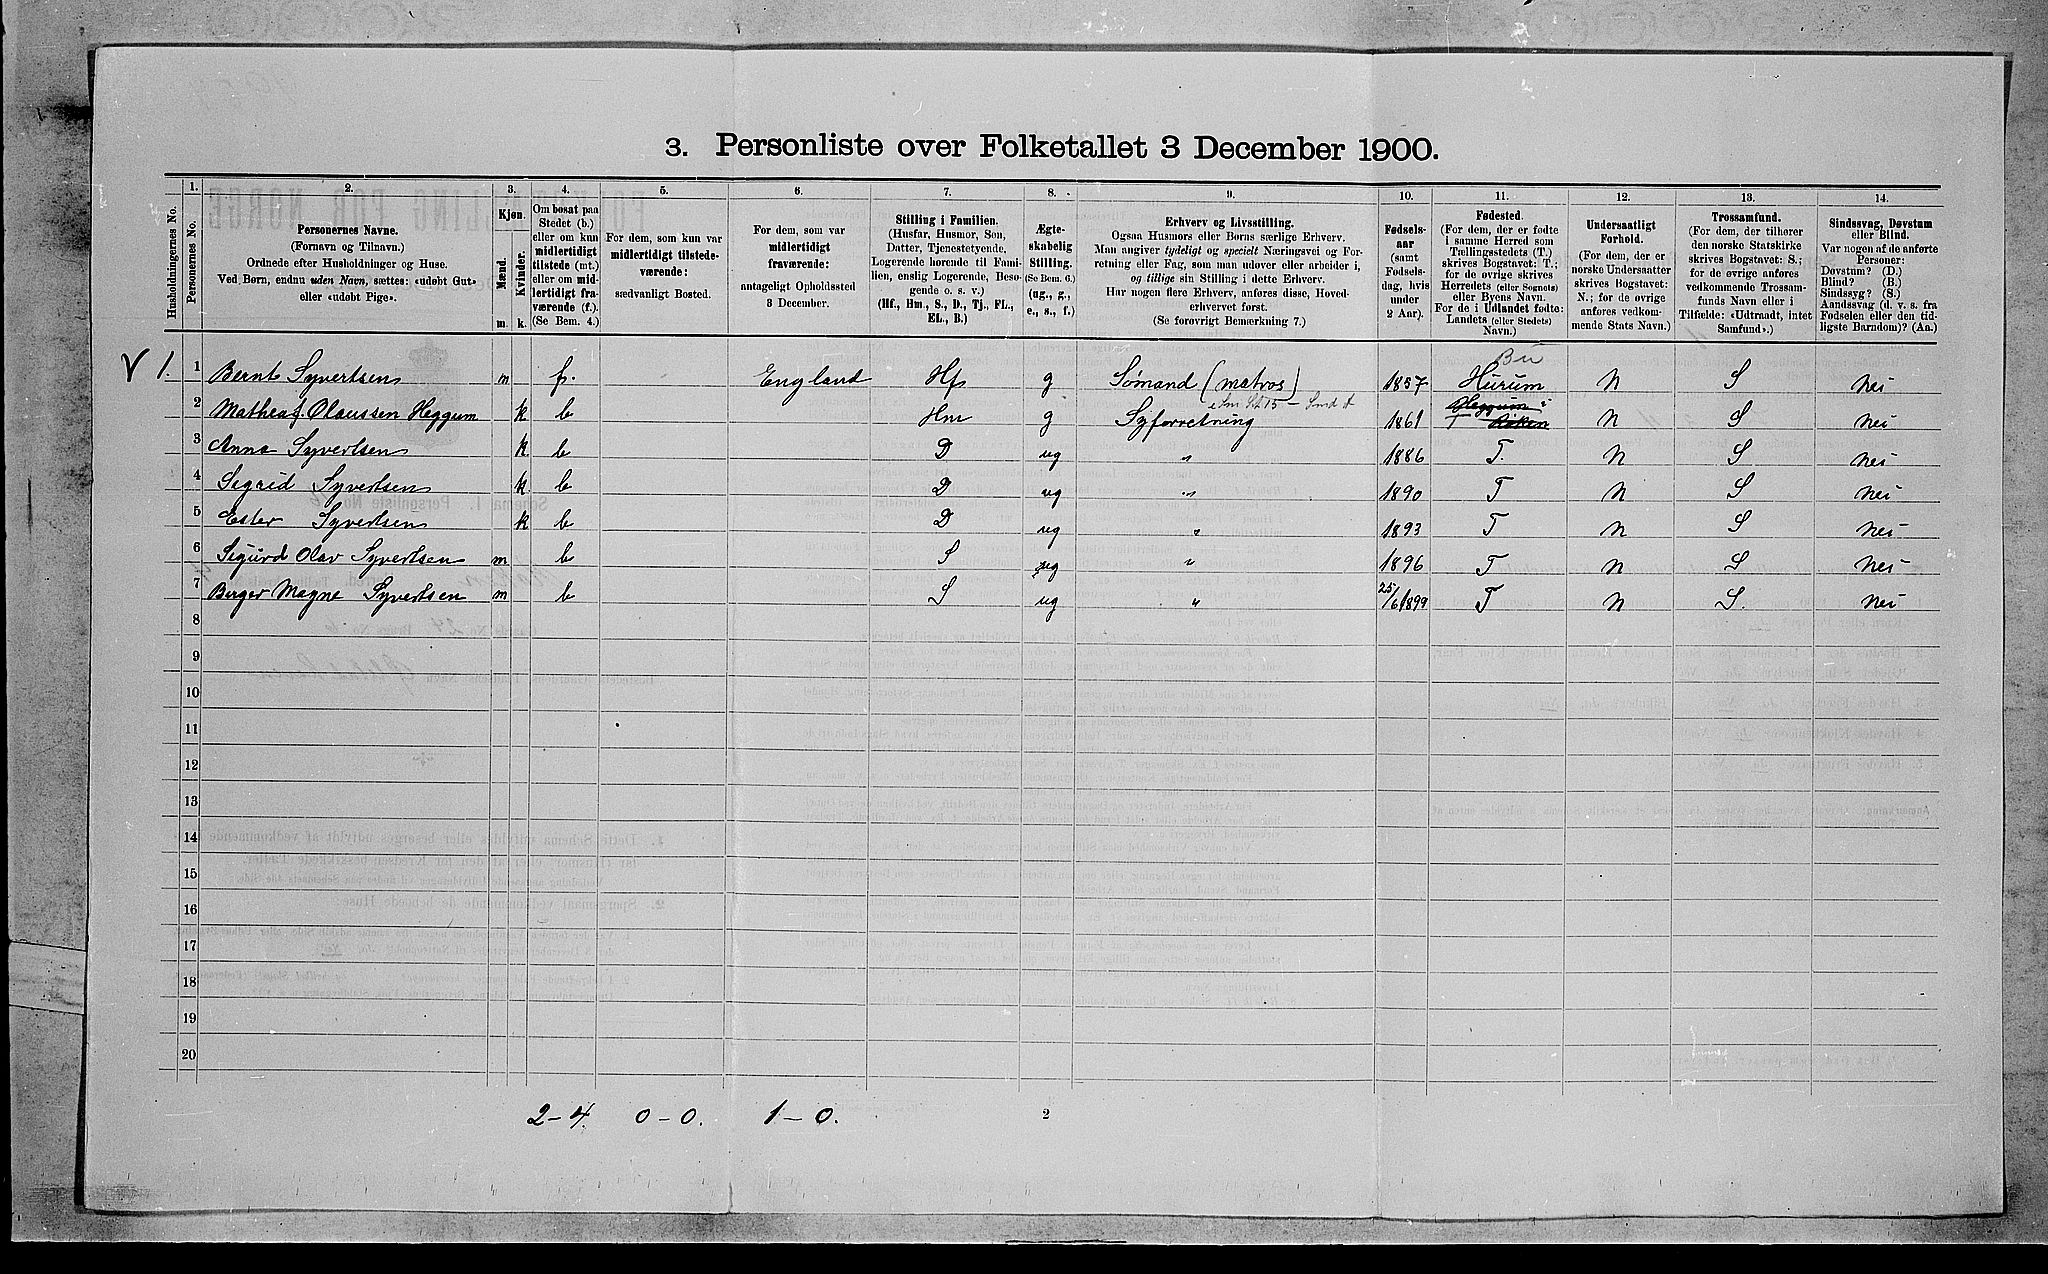 3. Personliste over Folketallet 3 December 1900.
Husholdningernes No.
1. Personernes No.
2. Personernes Navne.
(Fornavn og Tilnavn.)
Ordnede efter Husholdninger og Huse.
Ved Børn, endnu uden Navn, sættes: «udøbt Gut»
eller «udøbt Pige».
3. Kjøn.
Mænd. m.
Kvinder. k.
4. Om bosat paa
Stedet (b.)
eller om kun
midlertidigt
tilstede (mt.)
eller om mid-
lertidigt fra-
værende (f.).
(Se Bem. 4.)
5. For dem, som kun var
midlertidigt tilstede-
værende:
sædvanligt Bosted.
6. For dem, som var
midlertidigt
fraværende:
antageligt Opholdssted
3 December.
7. Stilling i Familien.
(Husfar, Husmor, Søn,
Datter, Tjenestetyende,
Logerende hørende til Fami-
lien, enslig Logerende, Besø-
gende o. s. v.)
(Hf., Hm., S., D., Tj., FL.,
EL., B.)
8. Ægte-
skabelig
Stilling.
(Se Bem. 6.)
(ug., g.,
e., s., f.)
9. Erhverv og Livsstilling.
Ogsaa Husmors eller Børns særlige Erhverv.
Man angiver tydeligt og specielt Næringsvei og For-
retning eller Fag, som man udøver eller arbeider i,
og tillige sin Stilling i dette Erhverv.
Har nogen flere Erhverv, anføres disse, Hoved-
erhvervet først.
(Se forøvrigt Bemærkning 7.)
10. Fødsels-
aar
(samt
Fødsels-
dag, hvis
under
2 Aar).
11. Fødested.
(For dem, der er fødte
i samme Herred som
Tællingsstedets (T.)
skrives Bogstavet: T.;
for de øvrige skrives
Herredets (eller Sognets)
eller Byens Navn.
For de i Udlandet fødte:
Landets (eller Stedets)
Navn.)
12. Undersaatligt
Forhold.
(For dem, der er
norske Undersaatter
skrives Bogstavet:
N.; for de øvrige
anføres vedkom-
mende Stats Navn.)
13. Trossamfund.
(For dem, der tilhører
den norske Statskirke
skrives Bogstavet: S.;
for de øvrige anføres
vedkommende Trossam-
funds Navn eller i
Tilfælde: «Udtraadt, intet
Samfund».)
14. Sindssvag, Døvstum
eller Blind.
Var nogen af de anførte
Personer:
Døvstum? (D.)
Blind? (B.)
Sindssyg? (S.)
Aandssvag (d. v. s. fra
Fødselen eller den tid-
ligste Barndom)? (Aa.)
Bu
V 1. 1 Bernt Syvertsen m f. England Hf g Sømand (matros) 1857 Hurum N S nei
2 Mathea Olaussen Heggum k b Hm g Syforretning 1861 Heggum i Røken T N S nei
3 Anna Syvertsen k b D ug " 1886 T. N S nei
4 Sigrid Syvertsen k b D ug " 1890 T N S nei
5 Ester Syvertsen k b D ug " 1893 T N S nei
6 Sigurd Olav Syvertsen m b S ug " 1896 T N S nei
7 Birger Magne Syvertsen m b S ug " 25/6 1899 T N S. nei
8
9
10
11
12
13
14
15
16
17
18
19
20
2-4. 0-0. 1-0. 2